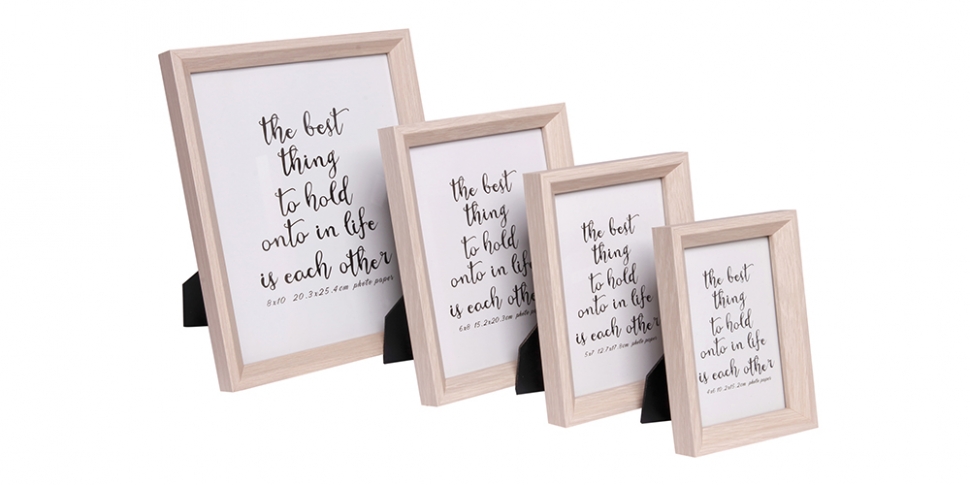 the best
thing
to hold
onto in life
is each other
8x10 20.3x25.4cm photo paper
the best
thing
to hold
onto in life
is each other
6x8 15.2x20.3cm photo paper
the best
thing
to hold
onto in life
is each other
5x7 12.7x17.8cm photo paper
the best
thing
to hold
onto in life
is each other
4x6 10.2x15.2cm photo paper